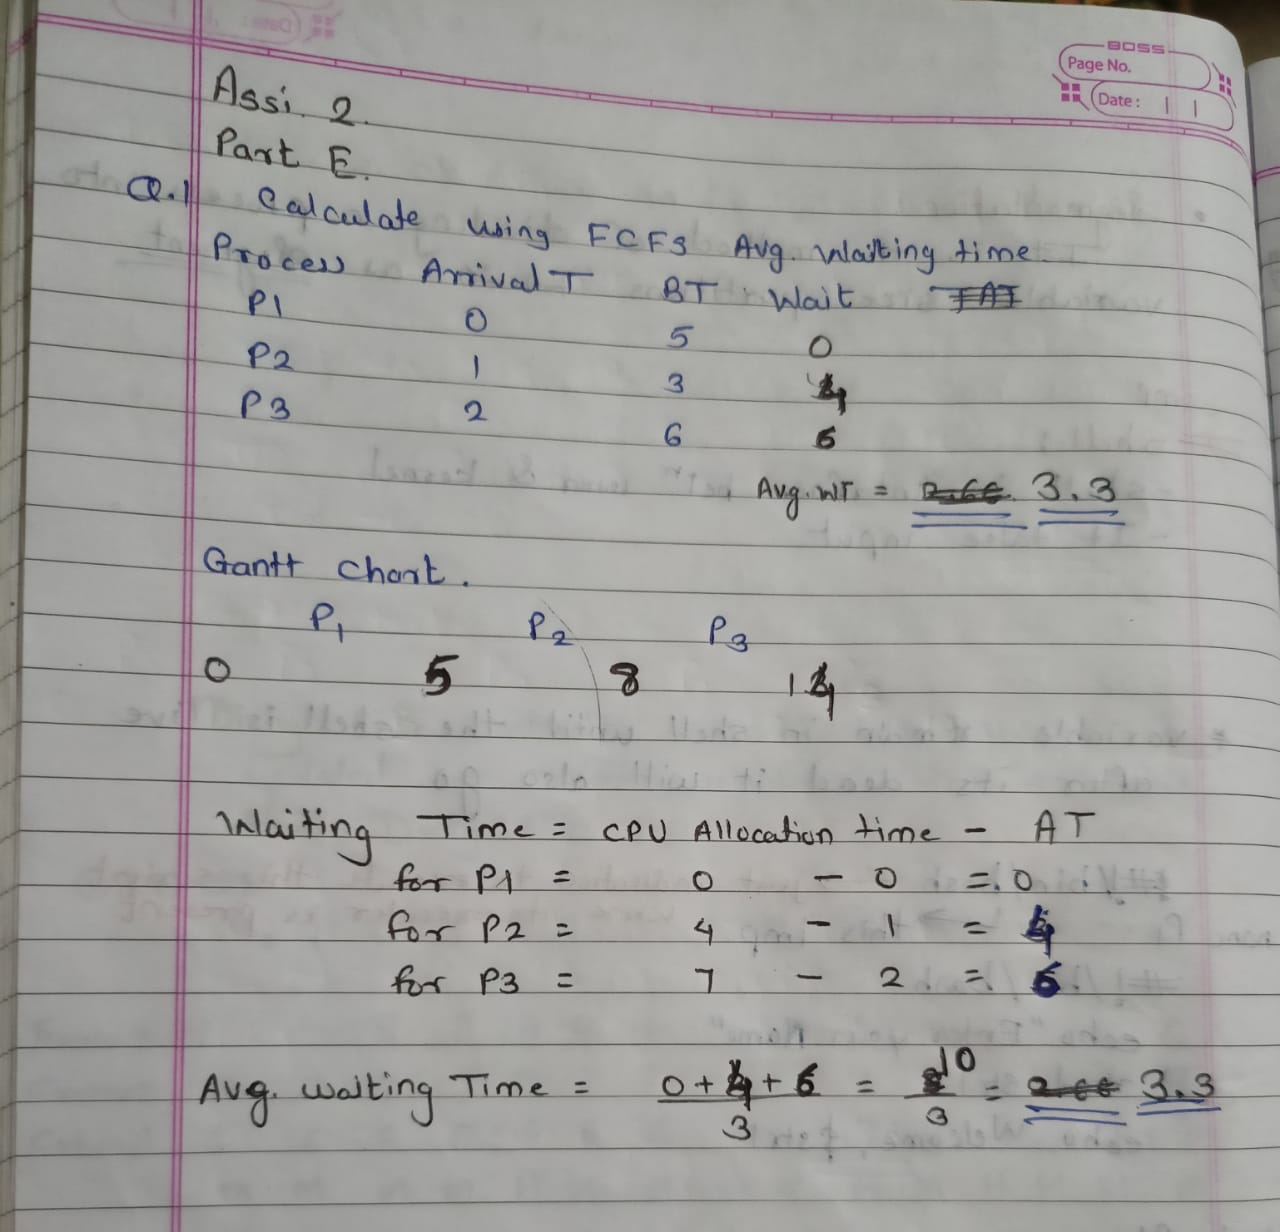 BOSS
Page No.
Date :
Assi. 2.
Part E.
Q.1 Calculate using FCFS Avg. Waiting time.
Process Arrival T BT Wait TAT
P1 0 5 0
P2 1 3 4
P3 2 6 6
Avg. WT = 2.66 3.3
Gantt chart.
P1 P2 P3
0 5 8 14
Waiting Time = CPU Allocation time - AT
for P1 = 0 - 0 = 0
for P2 = 4 - 1 = 4
for P3 = 7 - 2 = 6
Avg. waiting Time = 0+4+6 / 3 = 10 / 3 = 2.66 3.3